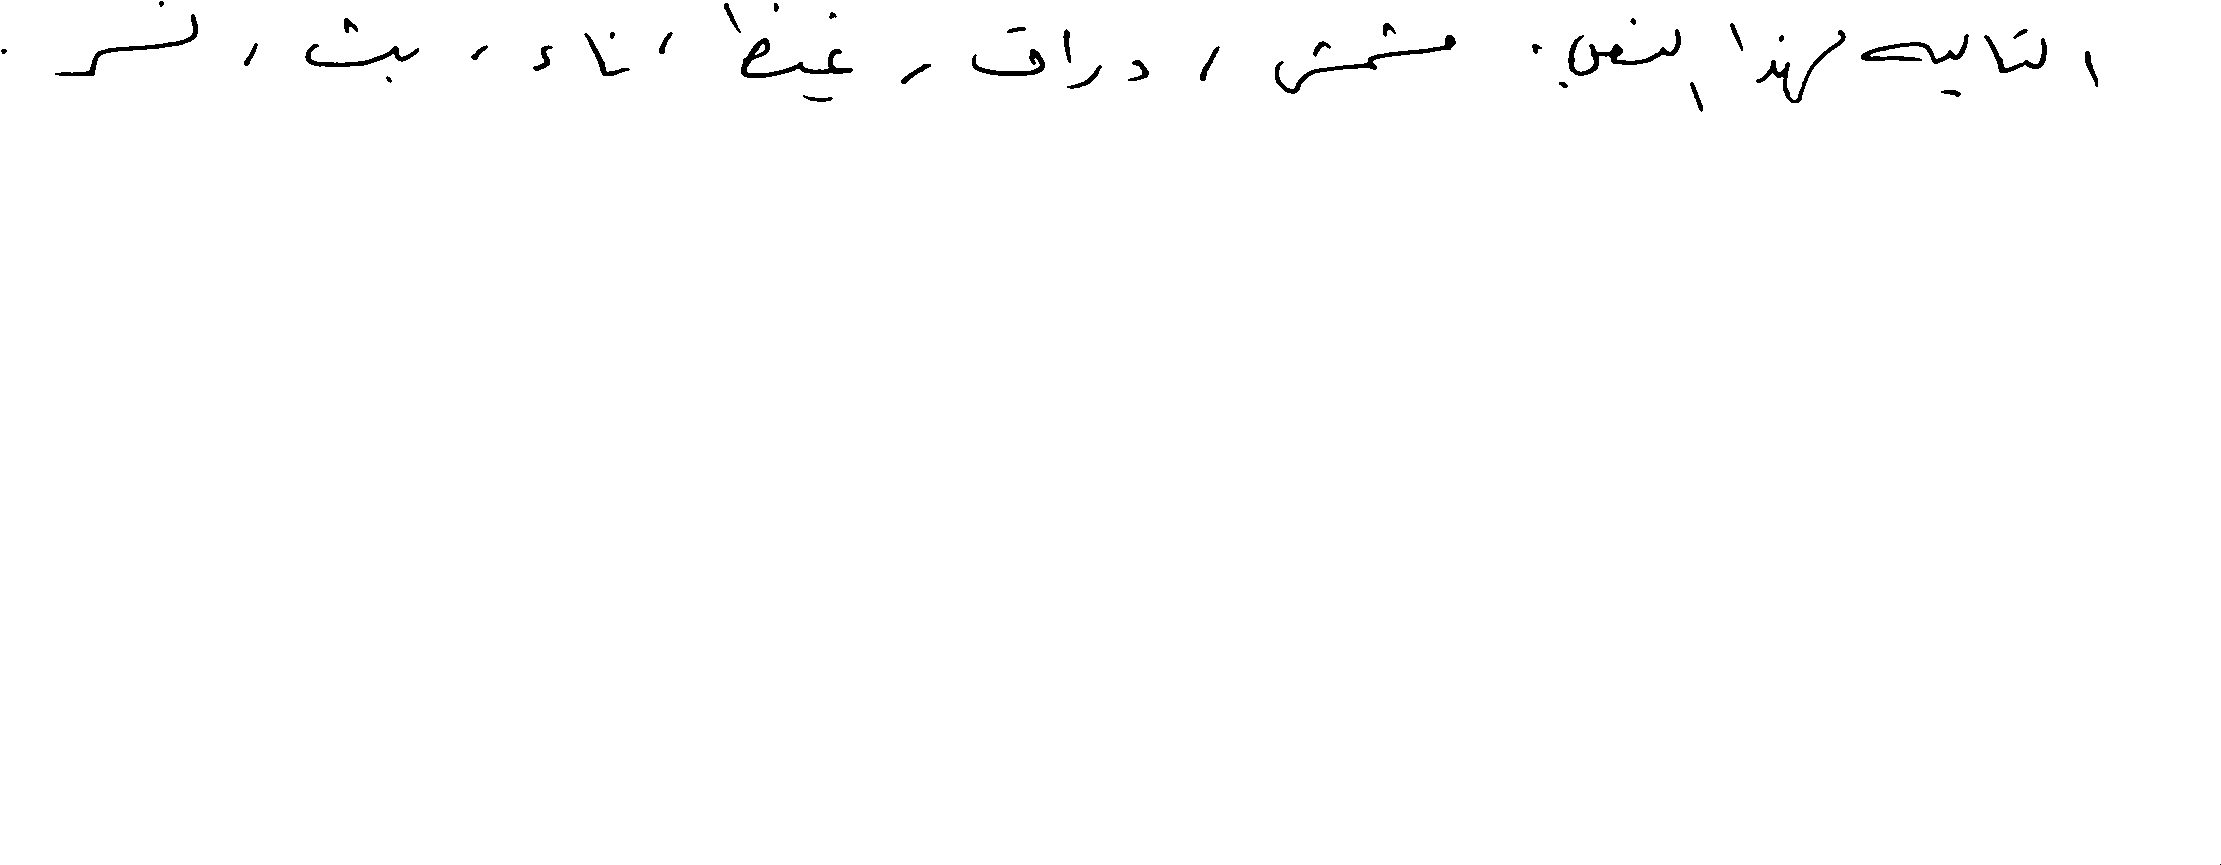 التالية لهذا النص. مشمش، دراق، غيظ، ناء، بث، نسر.